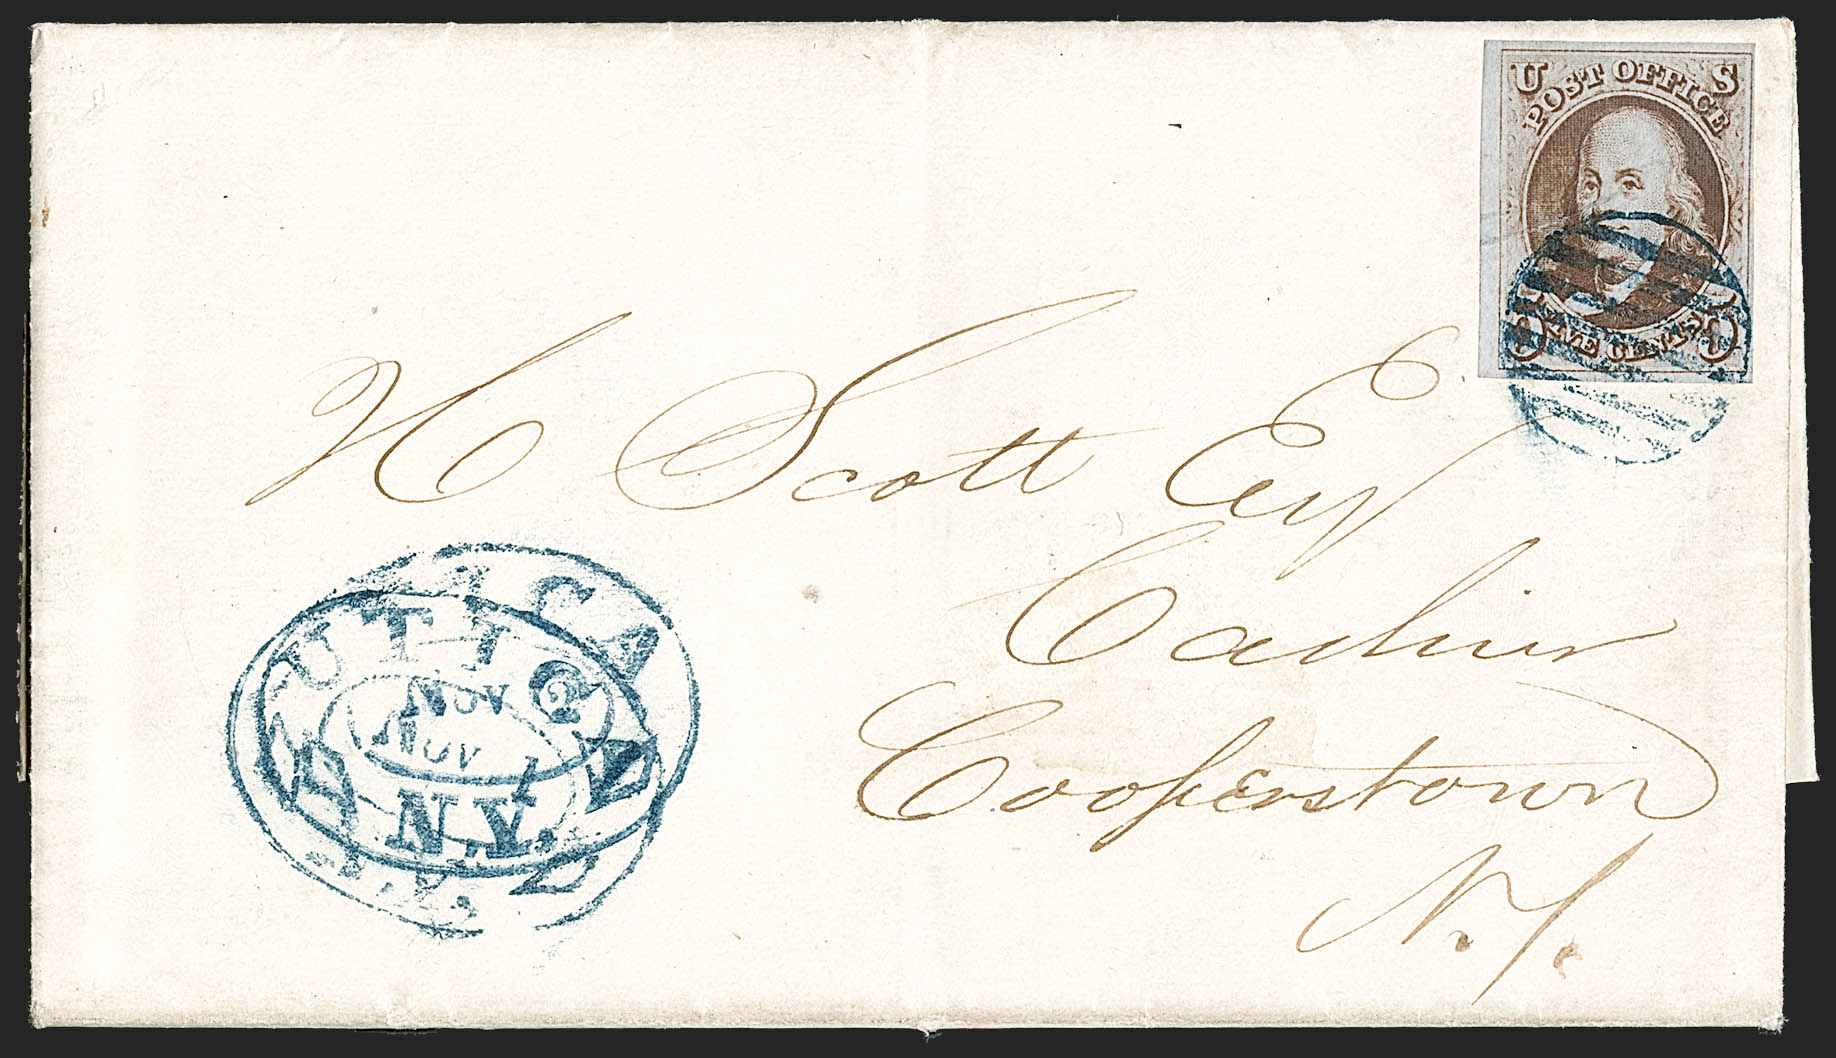 U S
POST OFFICE
5 FIVE CENTS 5
H Scott Esq
Cashier
Cooperstown
N.Y.
UTICA
NOV 2
N.Y.
UTICA
NOV 1
N.Y.